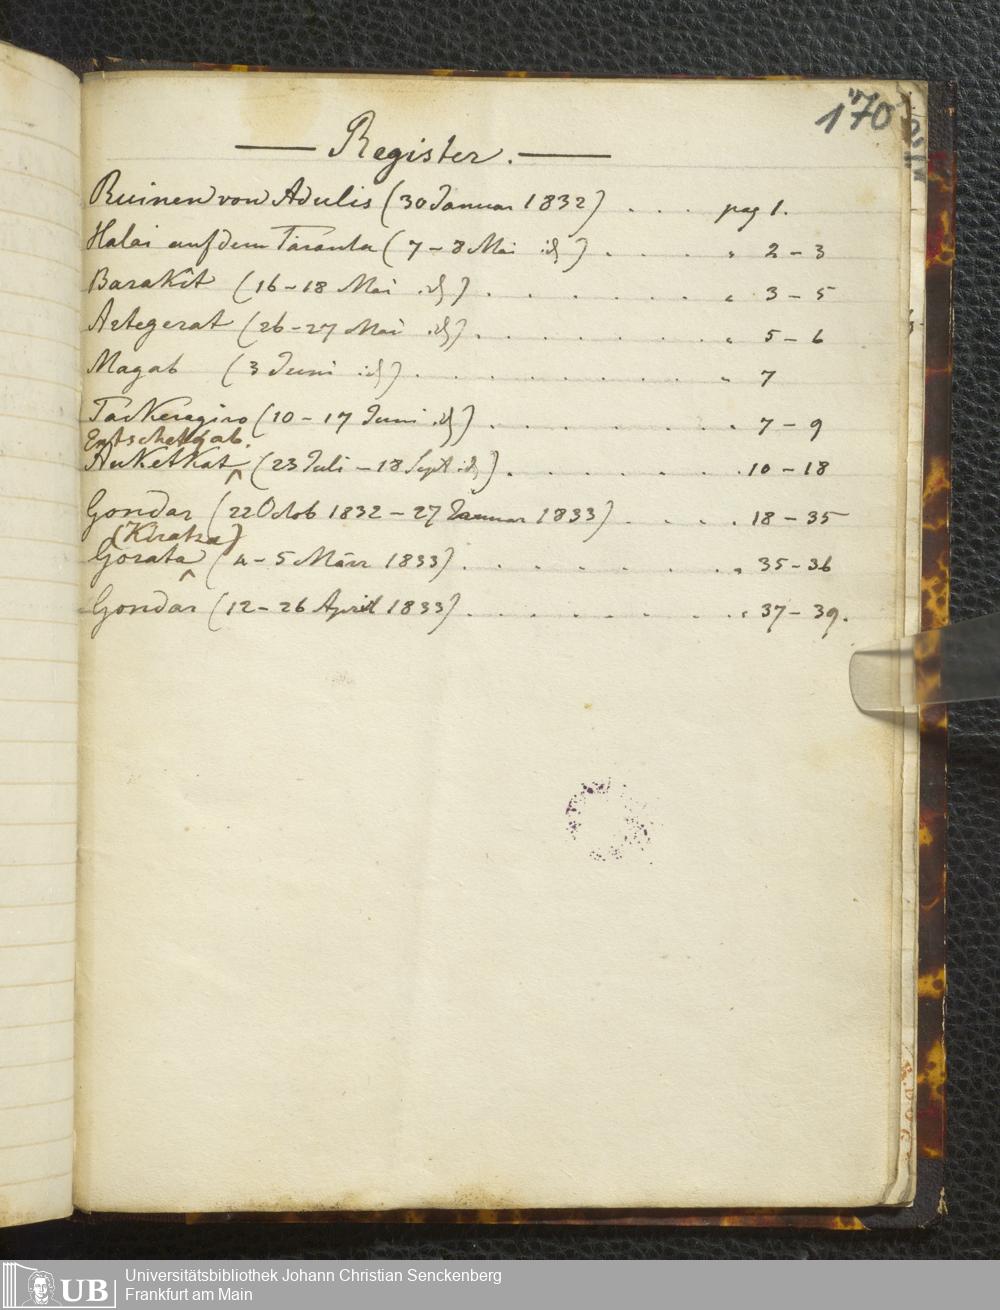 170
Register.
Ruinen von Adulis (30 Januar 1832) . . . pag 1.
Halai auf dem Taranta (7 – 8 Mai id) . . . . „ 2 – 3
Barakit (16 – 18 Mai id) . . . . . . „ 3 – 5
Ategerat (26 – 27 Mai id) . . . . . . „ 5 – 6
Magab (3 Juni id) . . . . . . . . „ 7
(10 – 17 Juni id) . . . . . . „ 7 – 9
Entschetgab.
Auketkat (23 Juli – 18 Sept id) . . . . . . 10 – 18
Gondar (22 Octob 1832 – 27 Januar 1833) . . . . 18 – 35
(Kiratza)
Gorata (4 – 5 März 1833) . . . . . . . „ 35 – 36
Gondar (12 – 26 April 1833) . . . . . . . „ 37 – 39.
UB
Universitätsbibliothek Johann Christian Senckenberg
Frankfurt am Main